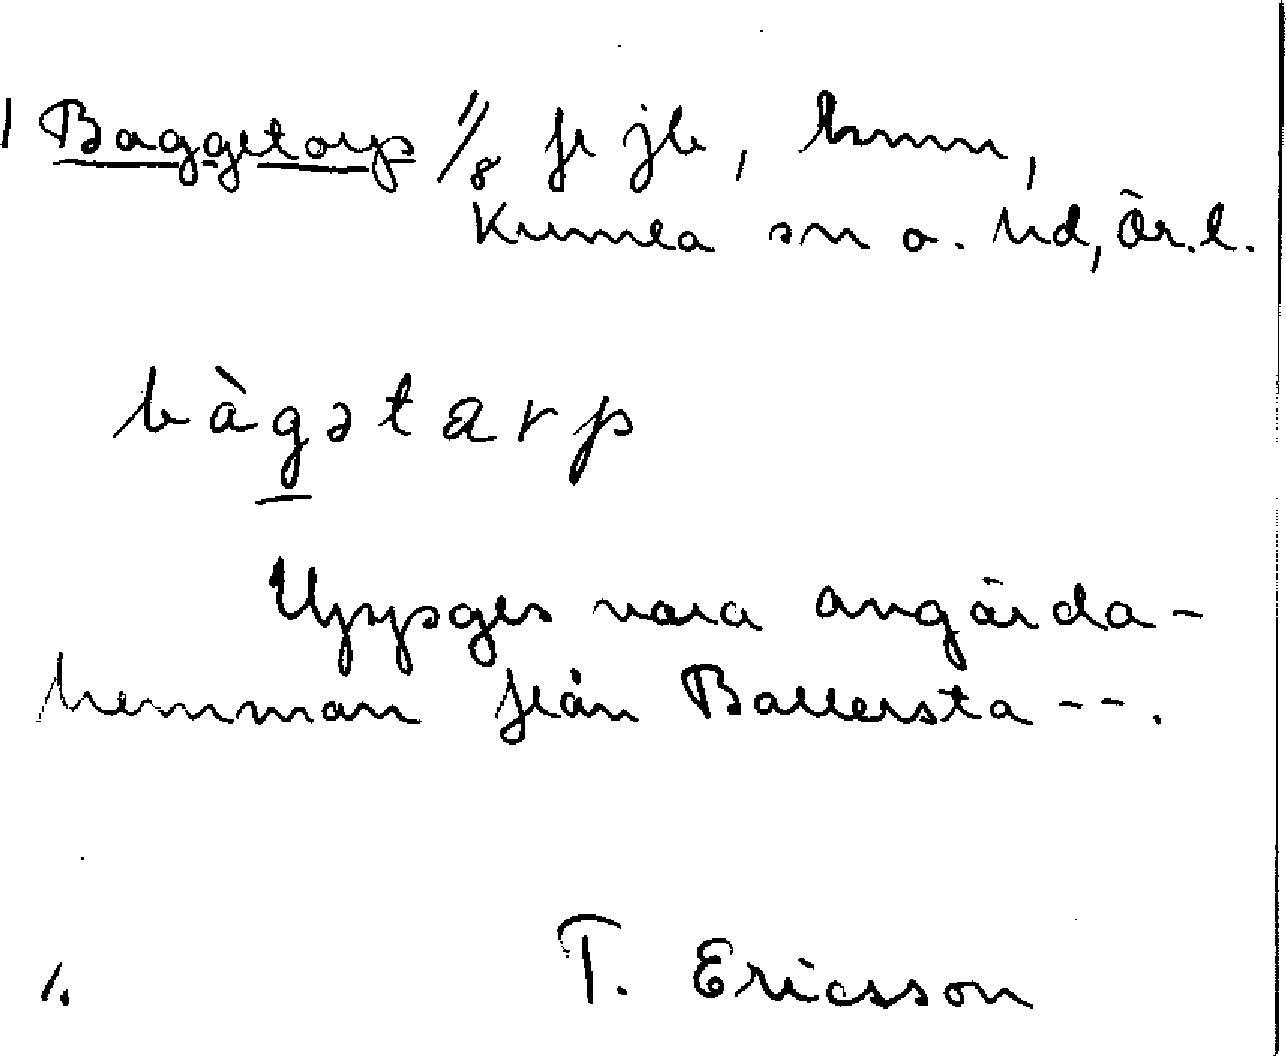 1 Baggetorp 1/8 fr jb, hmn,
Kumla sn o. hd, Ör. l.
bàgətarp
Uppges vara avgärda-
hemman från Ballersta --.
/.
T. Ericsson